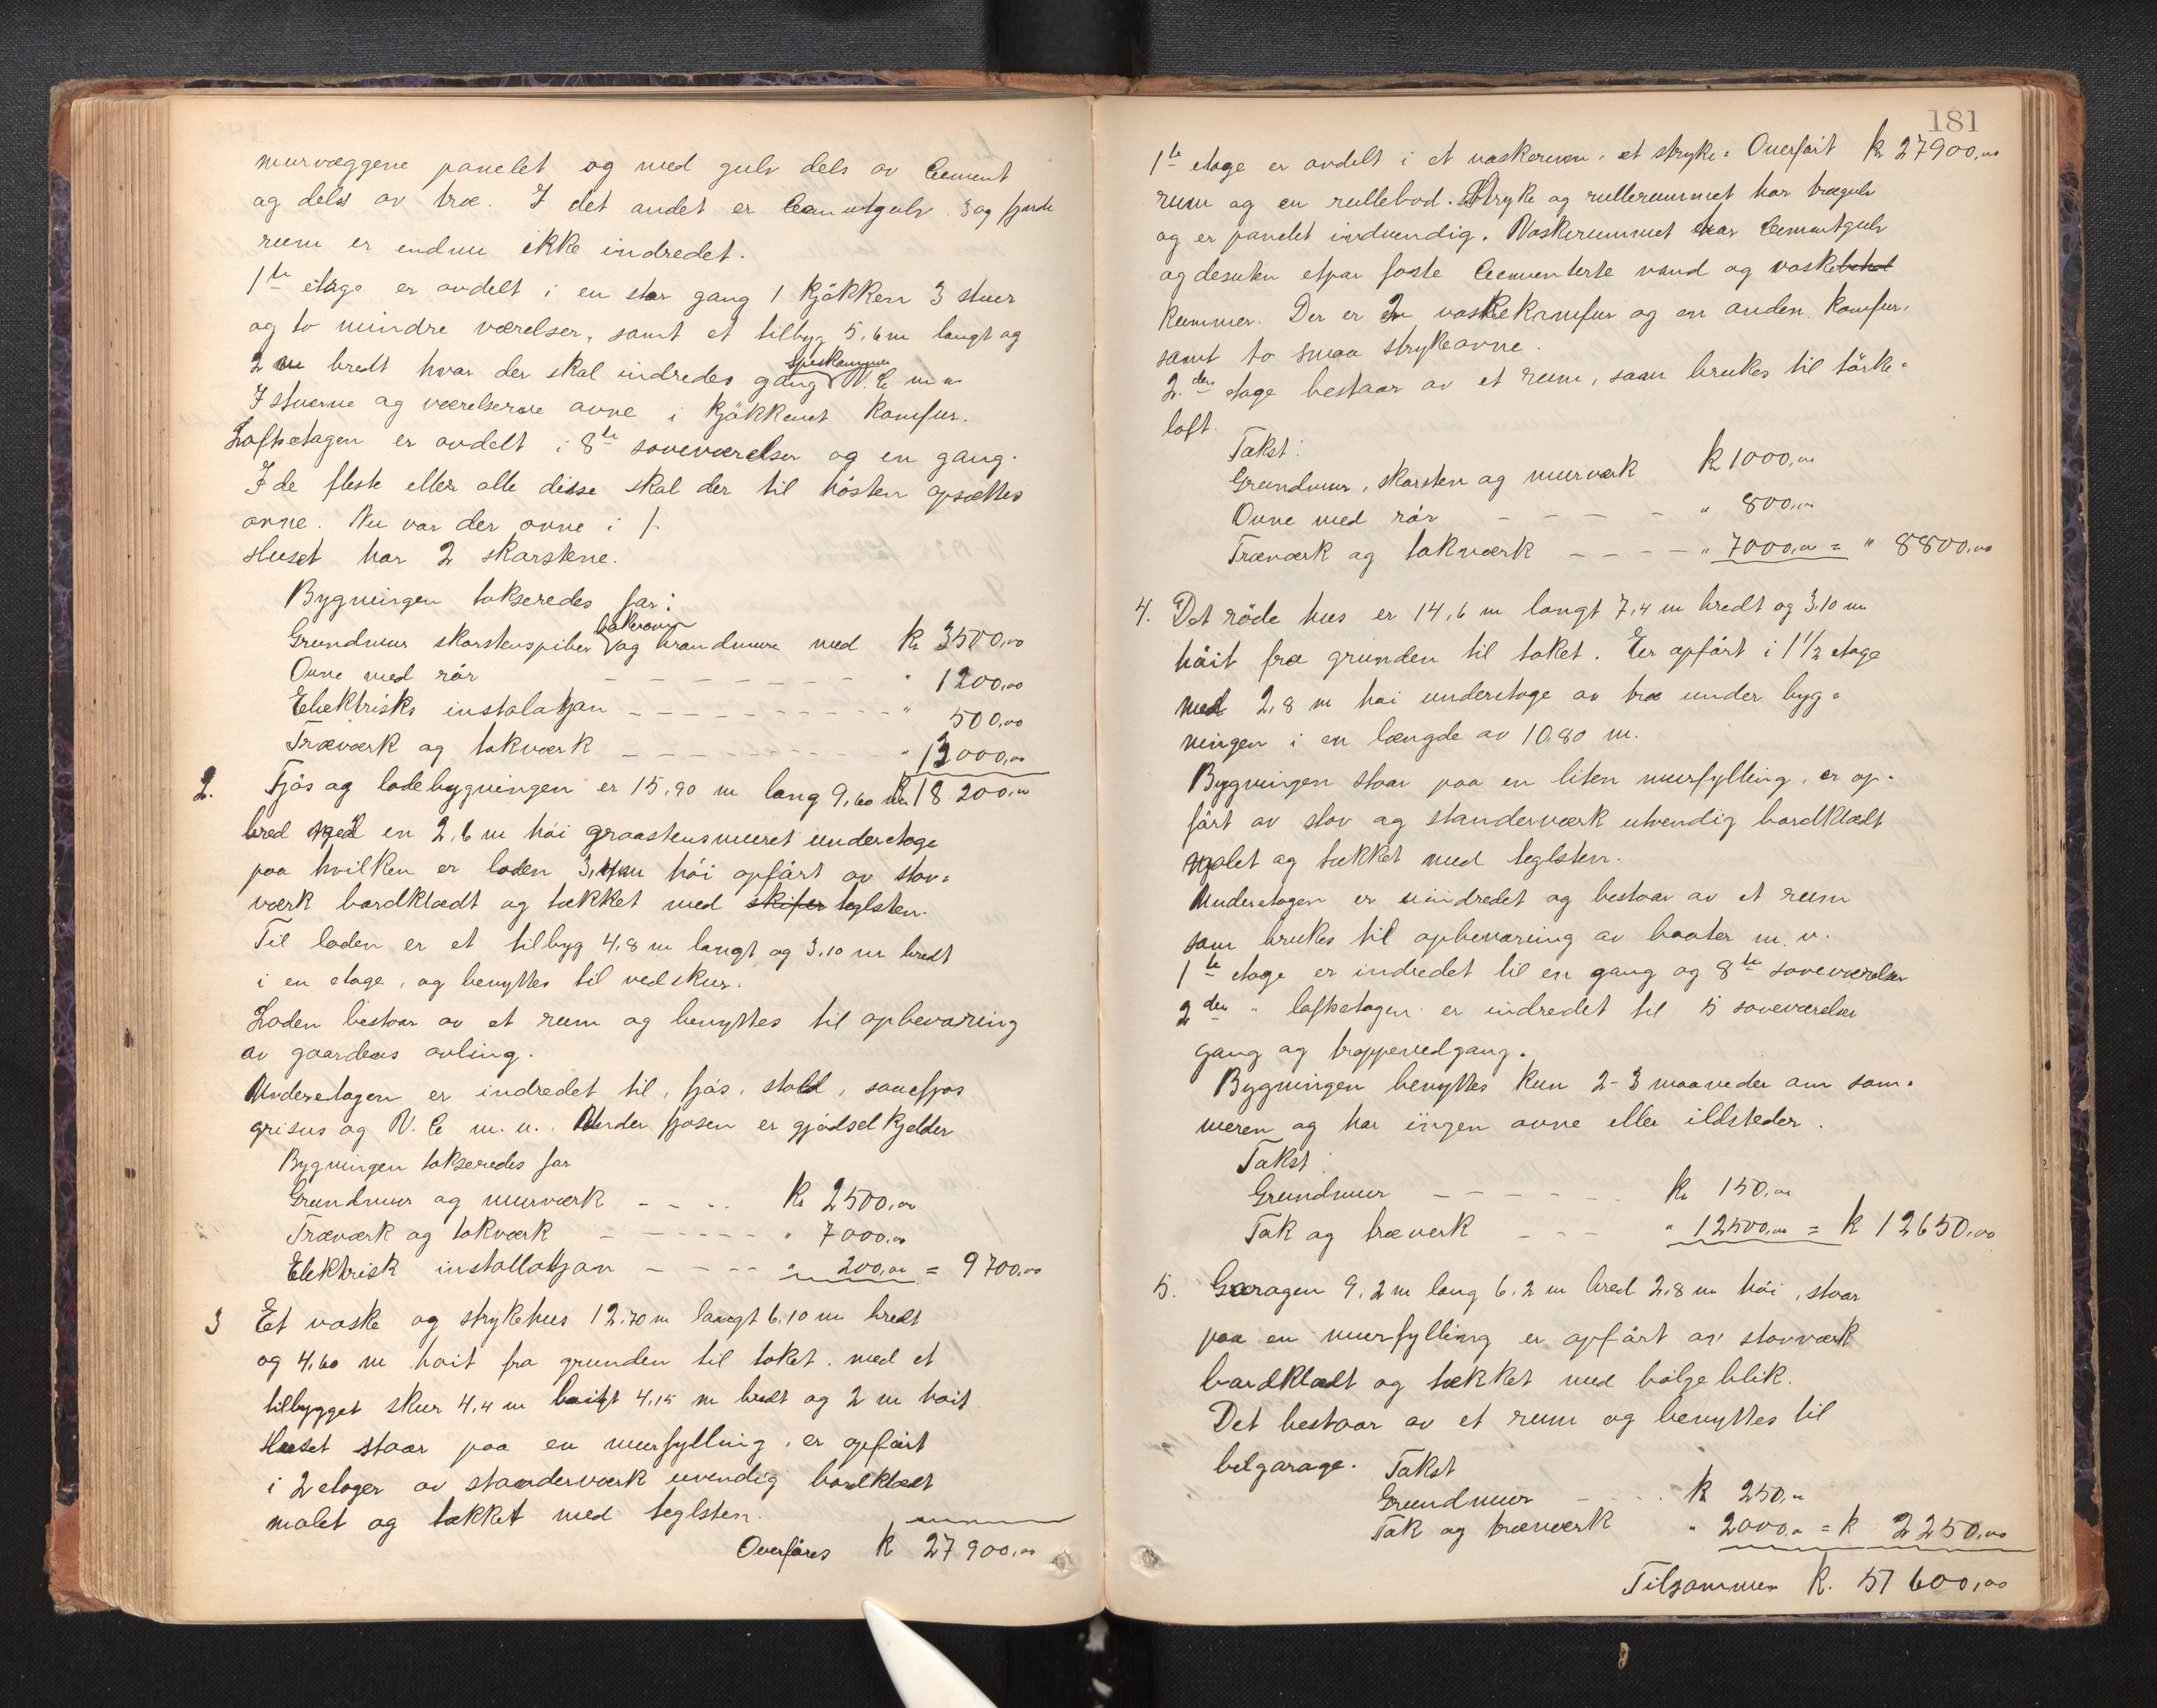 murvæggene panelet og med gulv dels av Cement
og dels av træ. I det andet er Cementgulv. 3 og fjerde
rum er endnu ikke indredet.
1ste etage er avdelt i en stor gang 1 kjøkken 3 stuer
og to mindre værelser, samt et tilbyg 5,6 m langt og
2 m bredt hvor der skal indredes gang spiskammer V. C. m m
I stuerne og værelserne ovne i kjøkkenet komfur.
Loftsetagen er avdelt i 8te soveværelser og en gang.
I de fleste eller alle disse skal der til høsten opsættes
ovne. Nu var der ovne i 1.
Huset har 2 skorstene.
Bygningen takseredes for:
Grundmur skorstenspiber bakerovn og brandmure med kr 3500,00
Ovne med rör - - - - - - - - " 1200,00
Elektrisks instalatjon - - - - - - - - - " 500,00
Træværk og takværk - - - - - - - " 13000,00
2. Fjös og ladebygningen er 15,90 m lang 9,60 m kr 18 200,00
bred med en 2,6 m höi graastensmuret underetage
paa hvilken er laden 3,4 m höi opfört av stav=
værk bordklædt og tækket med skifer teglsten.
Til laden er et tilbyg 4,8 m langt og 3,10 m bredt
i en etage, og benyttes til vedskur.
Laden bestaar av et rum og benyttes til opbevaring
av gaardens avling.
Underetagen er indredet til, fjös, stald, sauefjøs
grisus og V. C. m. m.. Under fjøsen er gjødselkjelder
Bygningen takseredes for
Grundmur og murværk - - - - kr 2500,00
Træværk og takværk - - - - - - " 7000,00
Elektrisk installatjon - - - - " 200,00 = 9700,00
3 Et vaske og strykehus 12.70 m langt 6,10 m bredt
og 4,60 m høit fra grunden til taket. med et
tilbygget skur 4,4 m langt 4,15 m bredt og 2 m høit
Huset staar paa en murfylling, er opfört
i 2 etager av standerværk uvendig bordklædt
malet og tækket med teglsten.
Overføres k 27 900,00
181
1ste etage er avdelt i et vaskerum, et stryke= Overført kr 27900,00
rum og en rullebod. Stryke og rullerummet har trægulv
og er panelet indvendig. Vaskerummet har Cementgulv
og desuten etpar faste Cementerte vand og vaskebehol
kummer. Der er en vaskekomfur og en anden komfur,
samt to smaa strykeovne.
2.den etage bestaar av et rum, saam brukes til törke=
loft.
Takst:
Grundmur, skorsten og murværk kr 1000,00
Ovne med rör - - - - - " 800,00
Træværk og takværk - - - - - " 7000,00 = " 8800,00
4. Det röde hus er 14,6 m langt 7,4 m bredt og 3,10 m
höit fra grunden til taket. Er opfört i 1 1/2 etage
med 2,8 m høi underetage av træ under byg=
ningen i en længde av 10.80 m.
Bygningen staar paa en liten murfylling, er op=
ført av stav og standerværk utvendig bordklædt
malet og tækket med teglsten.
Underetagen er uindredet og bestaar av et rum
som brukes til opbevaring av baater m. v.
1ste etage er indredet til en gang og 8te soveværelser
2den " loftsetagen er indredet til 5 soveværelser
gang og trappenedgang.
Bygningen benyttes kun 2-3 maaneder om som=
meren og har ingen ovne eller ildsteder.
Takst:
Grundmur - - - - - - - kr 150,00
Tak og træverk - - - " 12500,00 = k 12650,00
5. Garagen 9,2 m lang 6,2 m bred 2,8 m høi, staar
paa en murfylling er opført av stavværk
bordklædt og tækket med bølgeblik.
Det bestaar av et rum og benyttes til
bilgarage. Takst
Grundmur - - - - k 250,00
Tak og træværk " 2000,00 = k 2250,00
Tilsammen k. 51 600,00